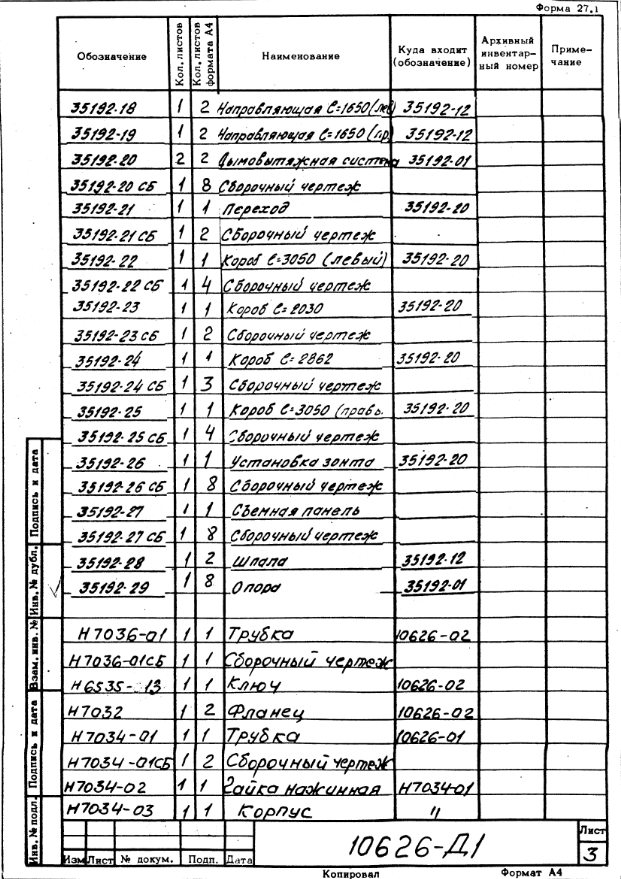 Форма 27.1
Обозначение Кол. листов Кол. листов формата А4 Наименование Куда входит (обозначение) Архивный инвентар-ный номер Приме-чание
35192-18 1 2 Направляющая ℓ=1650 (лев) 35192-12
35192-19 1 2 Направляющая ℓ=1650 (пр) 35192-12
35192.20 2 2 Дымовытяжная система 35192-01
35192-20 СБ 1 8 Сборочный чертеж
35192-21 1 1 Переход 35192-20
35192-21 СБ 1 2 Сборочный чертеж
35192-22 1 1 Короб ℓ=3050 (левый) 35192-20
35192-22 СБ 1 4 Сборочный чертеж
35192-23 1 1 Короб ℓ=2030 35192-20
35192-23 СБ 1 2 Сборочный чертеж
35192-24 1 1 Короб ℓ=2862 35192-20
35192-24 СБ 1 3 Сборочный чертеж
35192-25 1 1 Короб ℓ=3050 (правы. 35192-20
35192-25 СБ 1 4 Сборочный чертеж
35192-26 1 1 Установка зонта 35192-20
35192-26 СБ 1 8 Сборочный чертеж
35192-27 1 1 Съемная панель
35192-27 СБ 1 8 Сборочный чертеж
35192-28 1 2 Шпала 35192-12
35192-29 1 8 Опора 35192-01
Н7036-01 1 1 Трубка 10626-02
Н7036-01СБ 1 1 Сборочный чертеж
Н6535-13 1 1 Ключ 10626-02
Н7032 1 2 Фланец 10626-02
Н7034-01 1 1 Трубка 10626-01
Н7034-01СБ 1 2 Сборочный чертеж
Н7034-02 1 1 Гайка нажимная Н7034-01
Н7034-03 1 1 Корпус "
Инв. № подл. Подпись и дата Взам. инв. № Инв. № дубл. Подпись и дата
10626-Д1
Лист
3
Изм Лист № докум. Подп. Дата
Копировал Формат А4